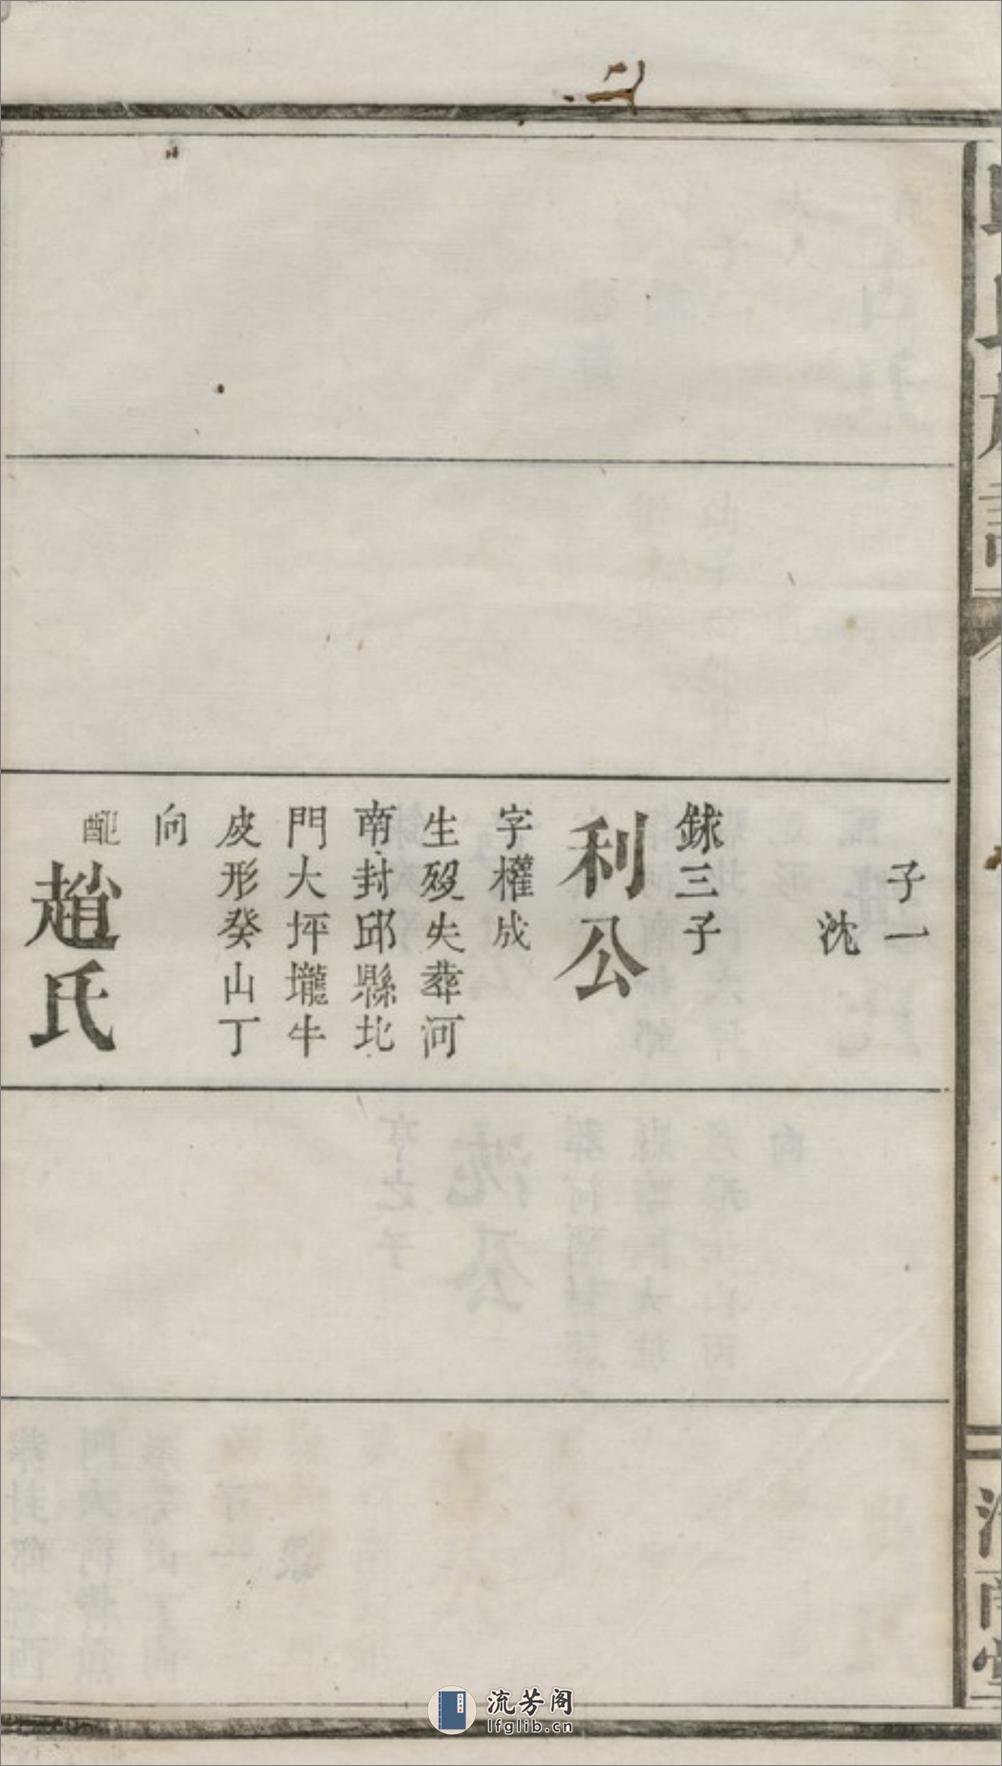 子一
沈
銶三子
利公
字權成
生歿失葬河
南封邱縣北
門大坪壠牛
皮形癸山丁
向
配
趙氏
流芳阁
lfglib.cn